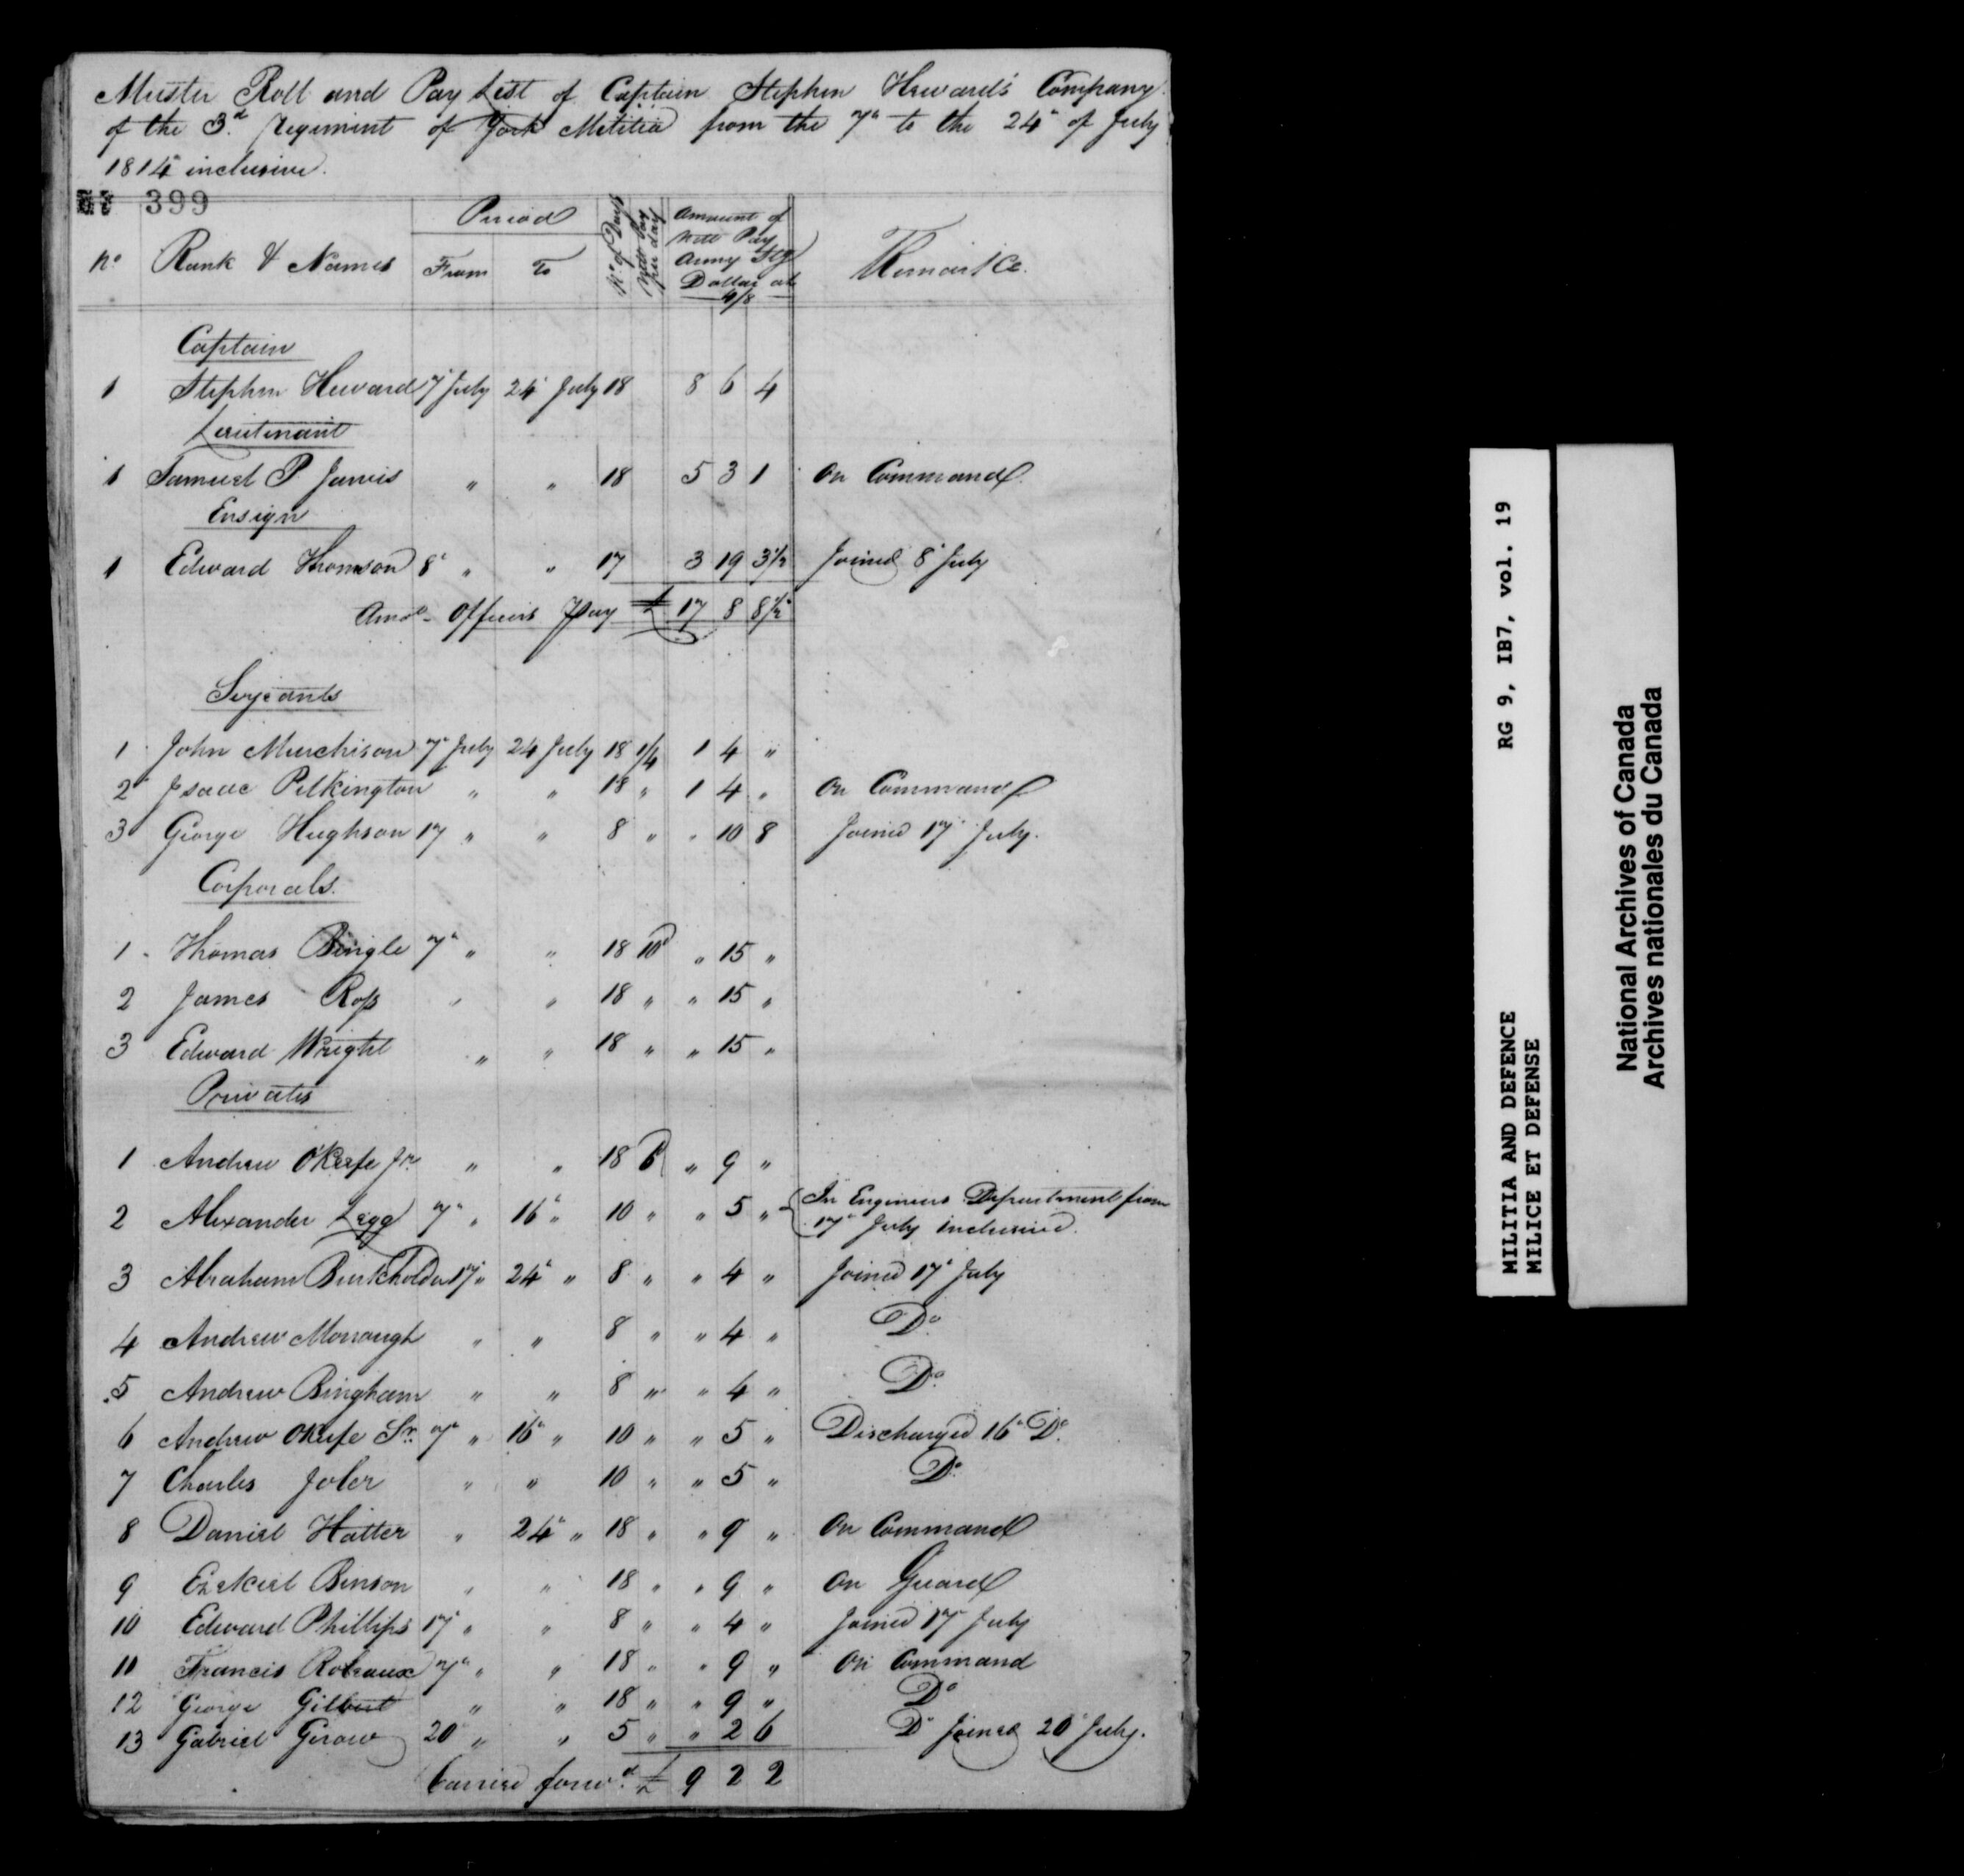 Muster Roll and Pay List of Captain Stephen Heward's Company
of the 3d Regiment of York Militia from the 7th to the 24th of July
1814 inclusive.
399
No Rank & Names Period From To No of Days Nett Pay per day Amount of Nett Pay Army Stg Dollar at 4/8 Remarks
Captain
1 Stephen Heward 7 July 24 July 18 8 6 4
Lieutenant
1 Samuel P. Jarvis " " 18 5 3 1 On Command
Ensign
1 Edward Thomson 8 " " 17 3 19 3½ Joined 8 July
Amot Officers Pay £ 17 8 8½
Serjeants
1 John Murchison 7 July 24 July 18 1/4 1 4 "
2 Isaac Pilkington " " 18 " 1 4 " On Command
3 George Hughson 17 " " 8 " " 10 8 Joined 17 July.
Corporals.
1 Thomas Bingle 7 " " 18 10d " 15 "
2 James Ross " " 18 " " 15 "
3 Edward Wright " " 18 " " 15 "
Privates
1 Andrew O'Keefe Jr. " " 18 6 " 9 "
2 Alexander Legg 7 " 16 " 10 " " 5 " In Engineers Department from
17 July inclusive.
3 Abraham Burkholder 17 " 24 " 8 " " 4 " Joined 17 July
4 Andrew Monaugh " " 8 " " 4 " Do
5 Andrew Bingham " " 8 " " 4 " Do
6 Andrew OKeefe Sr. 7 " 16 " 10 " " 5 " Discharged 16 Do
7 Charles Joler " " 10 " " 5 " Do
8 Daniel Hatter " 24 " 18 " " 9 " On Command
9 Ezekiel Binson " " 18 " " 9 " On Guard
10 Edward Phillips 17 " " 8 " " 4 " Joined 17 July
11 Francis Robeaux 7 " " 18 " " 9 " On Command
12 George Gilbert " " 18 " " 9 " Do
13 Gabriel Gerow 20 " " 5 " " 2 6 Do Joined 20 July.
Carried forwd £ 9 2 2
MILITIA AND DEFENCE RG 9, IB7, vol. 19
MILICE ET DEFENSE
National Archives of Canada
Archives nationales du Canada